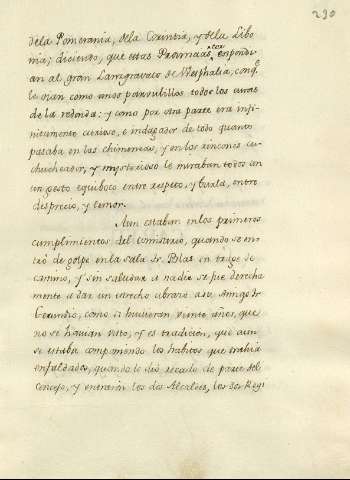 230
dela Pomerania, dela Curintia, y dela Libo
nia; diciendo, que estas Provincias correspondi
an al gran Landgraviato de Wesphalia, con q.e
le oian como unos parvulillos todos los curas
de la redonda: y como por otra parte era infi
nitamente curioso, e indagador de todo quanto
pasaba en las chimeneas, y en los rincones cu
chucheador, y mysterioso le miraban todos con
un gesto equiboco entre respeto, y burla, entre
desprecio, y temor.
Aun estaban en los primeros
cumplimientos del comisario, quando se me
tió de golpe en la sala Dn. Blas en trage de
camino, y sin saludar a nadie se fue derecha
mente a dar un estrecho abrazo a su Amigo Fr.
Gerundio, como si hubieran veinte años, que
no se havian visto, y es tradicion, que aun
se estaba componiendo los habitos que trahia
enfaldados, quando le dio recado de parte del
Concejo, y entraron los dos Alcaldes, los dos Regi